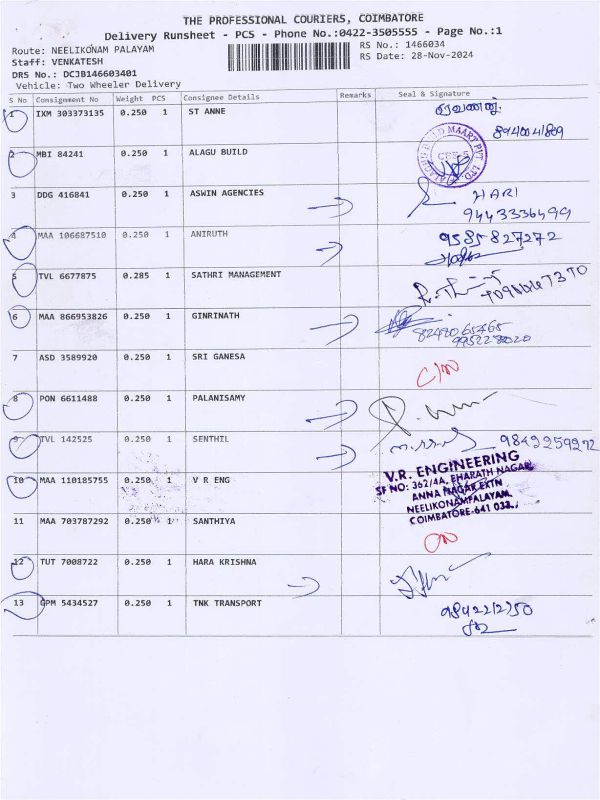 THE PROFESSIONAL COURIERS, COIMBATORE
Delivery Runsheet - PCS - Phone No.:0422-3505555 - Page No.:1
Route: NEELIKONAM PALAYAM
RS No.: 1466034
Staff: VENKATESH
RS Date: 28-Nov-2024
DRS No.: DCJB146603401
Vehicle: Two Wheeler Delivery
S No Consignment No Weight PCS Consignee Details Remarks Seal & Signature
1 IXM 303373135 0.250 1 ST ANNE
2 MBI 84241 0.250 1 ALAGU BUILD
3 DDG 416841 0.250 1 ASWIN AGENCIES HARI
9443336499
4 MAA 106687510 0.250 1 ANIRUTH 9585827272
5 TVL 6677875 0.285 1 SATHRI MANAGEMENT
6 MAA 866953826 0.250 1 GINRINATH
7 ASD 3589920 0.250 1 SRI GANESA
8 PON 6611488 0.250 1 PALANISAMY
9 TVL 142525 0.250 1 SENTHIL 9842259272
10 MAA 110185755 0.250 1 V R ENG V.R. ENGINEERING
SF NO: 362/4A, BHARATH NAGAR
ANNA NAGAR EXTN
NEELIKONAMPALAYAM,
COIMBATORE-641 033.
11 MAA 703787292 0.250 1 SANTHIYA
12 TUT 7008722 0.250 1 HARA KRISHNA
13 GPM 5434527 0.250 1 TNK TRANSPORT